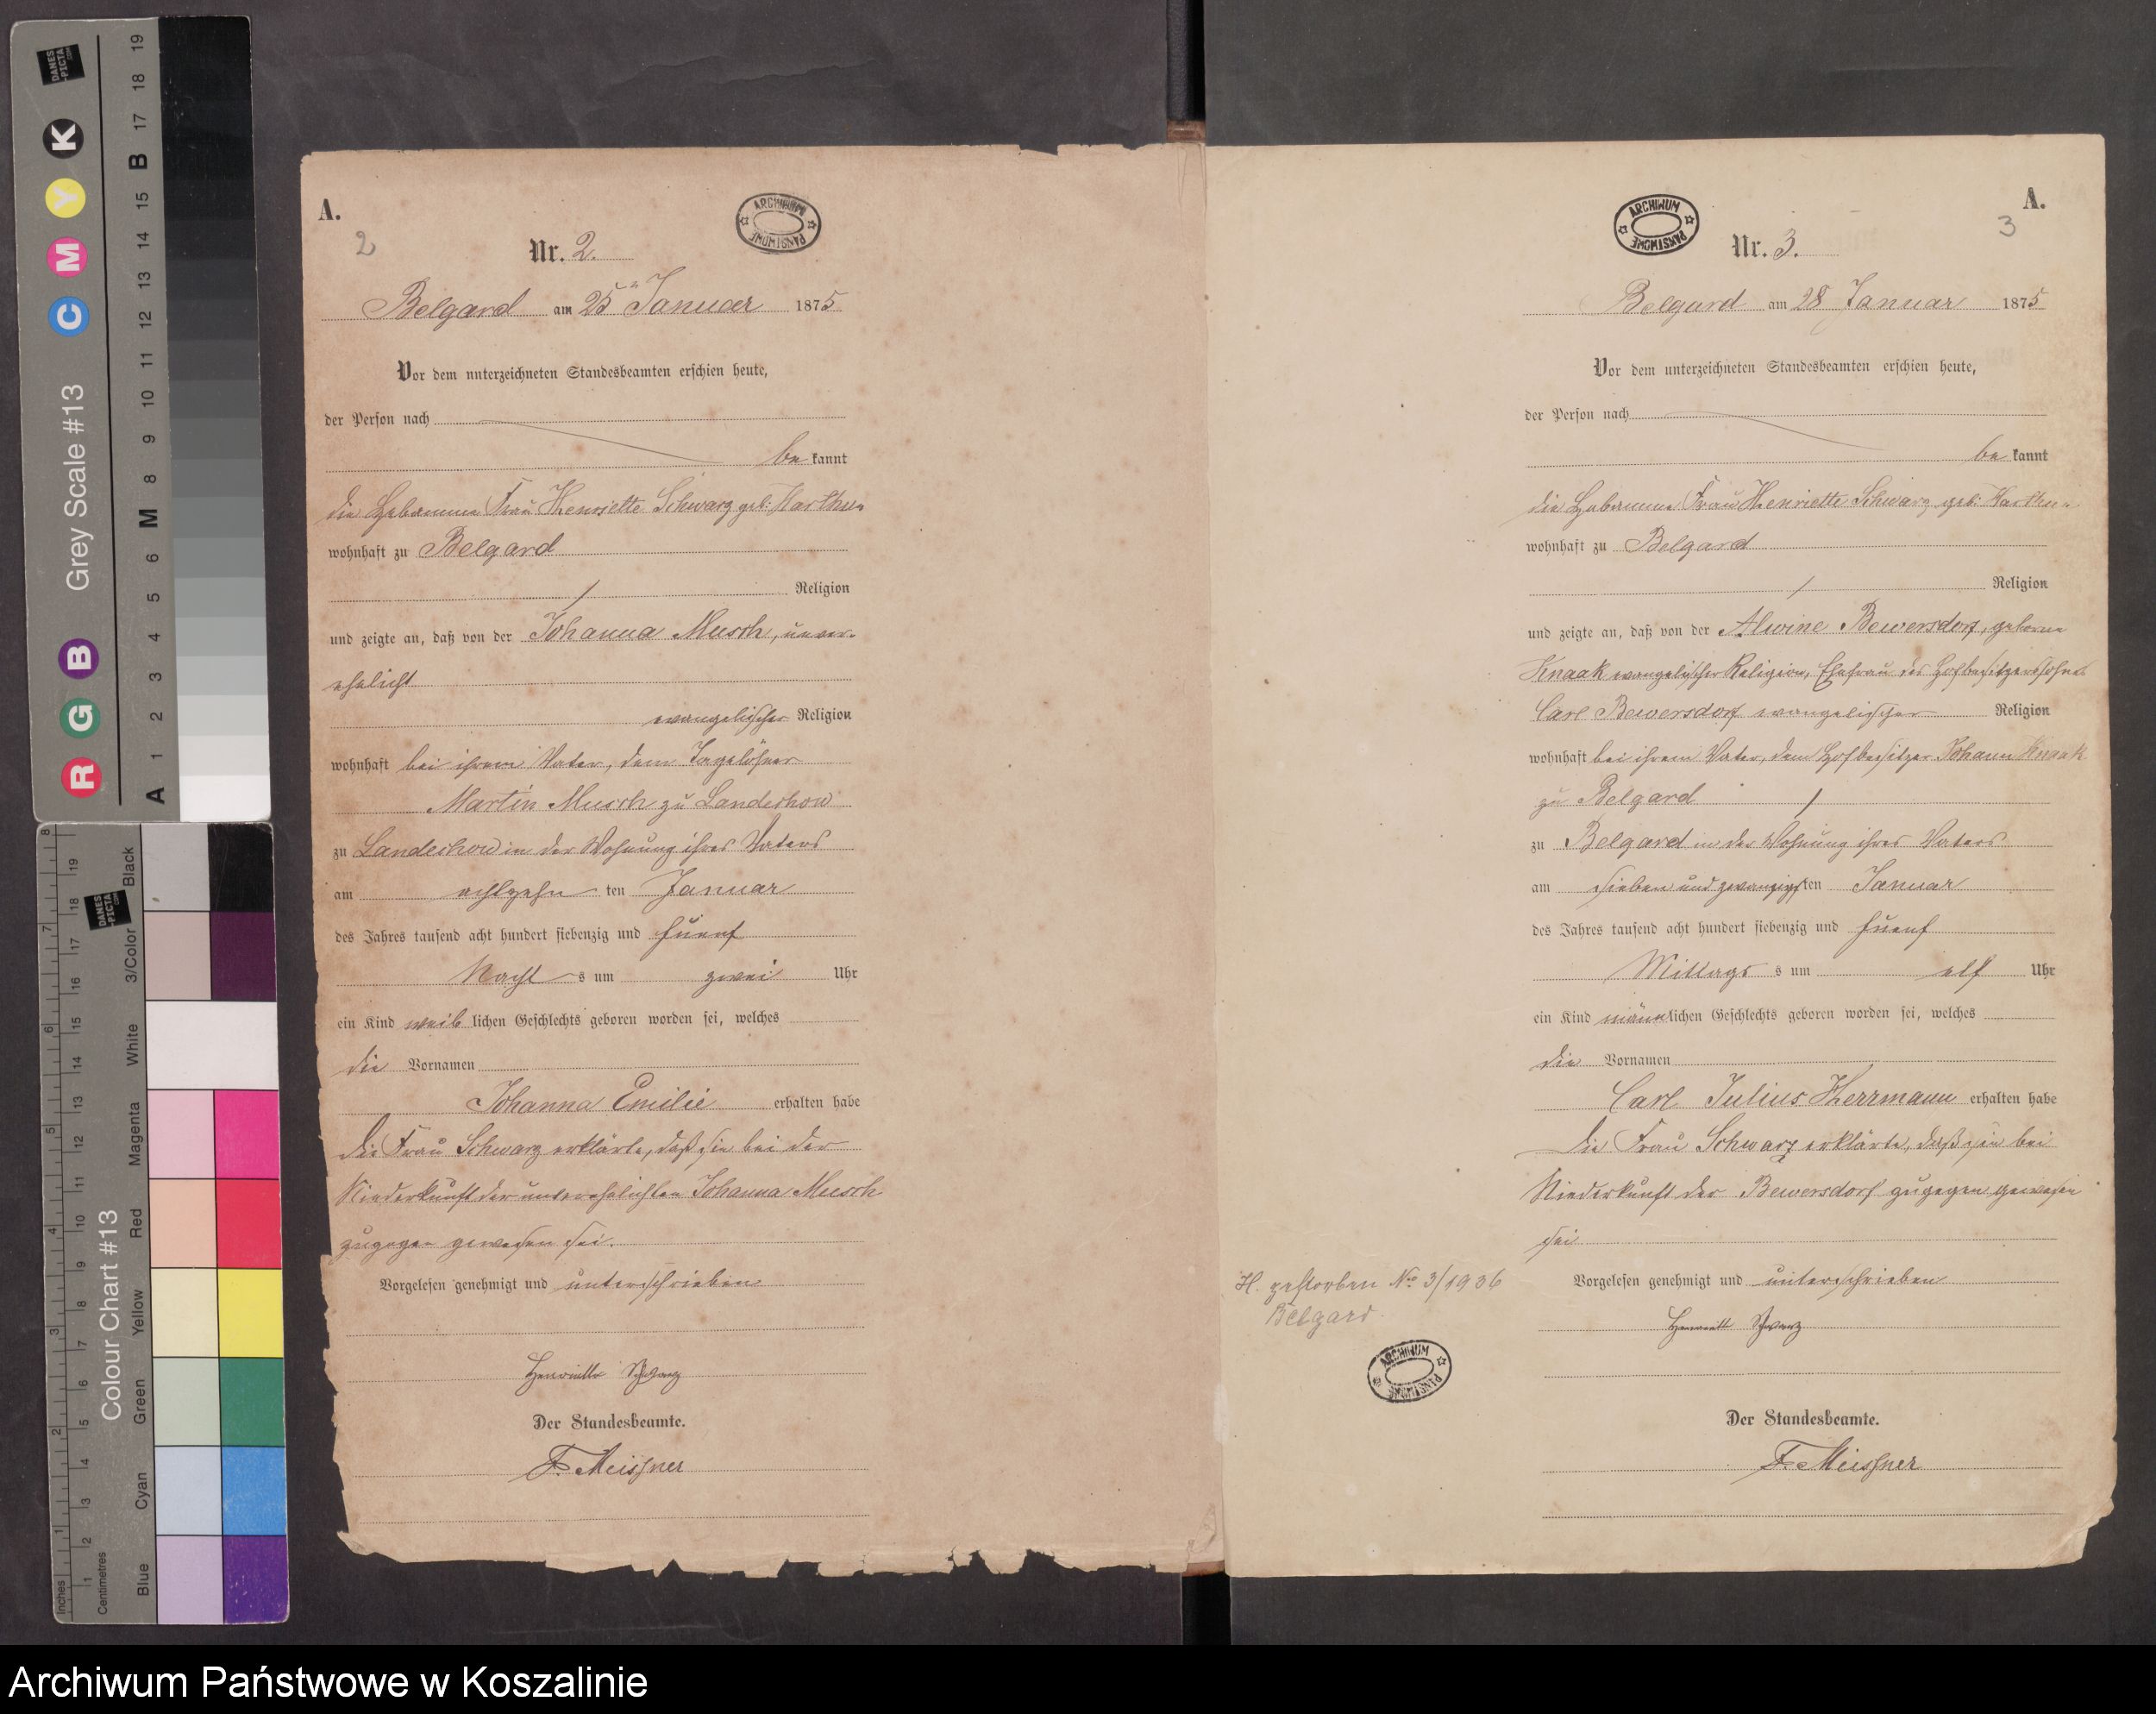 A.
2
ARCHIWUM PAŃSTWOWE
Nr. 2.
Belgard am 25ten Januar 1875
Vor dem unterzeichneten Standesbeamten erschien heute,
der Person nach
be kannt
die Hebamme Frau Henriette Schwarz geb. Harthun
wohnhaft zu Belgard
/ Religion
und zeigte an, daß von der Johanna Musch, unver-
ehelicht
evangelischer Religion
wohnhaft bei ihrem Vater, dem Tagelöhner
Martin Musch zu Landechow
zu Landechow in der Wohnung ihres Vaters
am achtzehn ten Januar
des Jahres tausend acht hundert siebenzig und fuenf
Nacht s um zwei Uhr
ein Kind weib lichen Geschlechts geboren worden sei, welches
die Vornamen
Johanna Emilie erhalten habe
Die Frau Schwarz erklärte, daß sie bei der
Niederkunft der unverehelichten Johanna Musch
zugegen gewesen sei.
Vorgelesen genehmigt und unterschrieben
Henriette Schwarz
Der Standesbeamte.
F. Meissner
A.
3
ARCHIWUM PAŃSTWOWE
Nr. 3.
Belgard am 28 Januar 1875
Vor dem unterzeichneten Standesbeamten erschien heute,
der Person nach
be kannt
die Hebamme Frau Henriette Schwarz geb. Harthun
wohnhaft zu Belgard
/ Religion
und zeigte an, daß von der Alwine Bewersdorf, geborne
Knaak evangelischer Religion, Ehefrau des Hofbesitzerssohnes
Carl Bewersdorf evangelischer Religion
wohnhaft bei ihrem Vater, dem Hofbesitzer Johann Knaak
zu Belgard /
zu Belgard in der Wohnung ihres Vaters
am sieben und zwanzigsten Januar
des Jahres tausend acht hundert siebenzig und fuenf
Mittags s um elf Uhr
ein Kind männlichen Geschlechts geboren worden sei, welches
die Vornamen
Carl Julius Herrmann erhalten habe
Die Frau Schwarz erklärte, daß sie bei
Niederkunft der Bewersdorf zugegen gewesen
sei
Vorgelesen genehmigt und unterschrieben
Henriette Schwarz
Der Standesbeamte.
F. Meissner
H. gestorben No 3/1936
Belgard
ARCHIWUM PAŃSTWOWE
DANES-PICTA.COM
Grey Scale #13
R G B C M Y K
A 1 2 3 4 5 6 M 8 9 10 11 12 13 14 15 B 17 18 19
DANES-PICTA.COM
Colour Chart #13
Blue Cyan Green Yellow Red Magenta White 3/Color Black
Inches 1 2 3 4 5 6 7 8
Centimetres 1 2 3 4 5 6 7 8 9 10 11 12 13 14 15 16 17 18 19
Archiwum Państwowe w Koszalinie